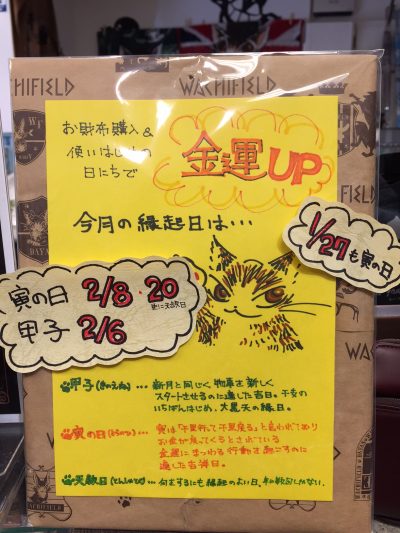 WACHIFIELD
お財布購入&
使いはじめの
日にちで
金運UP
今月の縁起日は…
1/27も寅の日
寅の日 2/8・20
更に天赦日
甲子 2/6
甲子(きのえね)…新月と同じく物事を新しく
スタートさせるのに適した吉日。干支の
いちばんはじめ、大黒天の縁日。
寅の日(とらのひ)…寅は「千里行って千里戻る」と言われており
お金が戻ってくるとされている
金運にまつわる行動を起こすのに
適した吉祥日。
天赦日(てんしゃび)…何をするにも縁起のよい日。年に数回しかない。
WACHIFIELD
WACHIFIELD